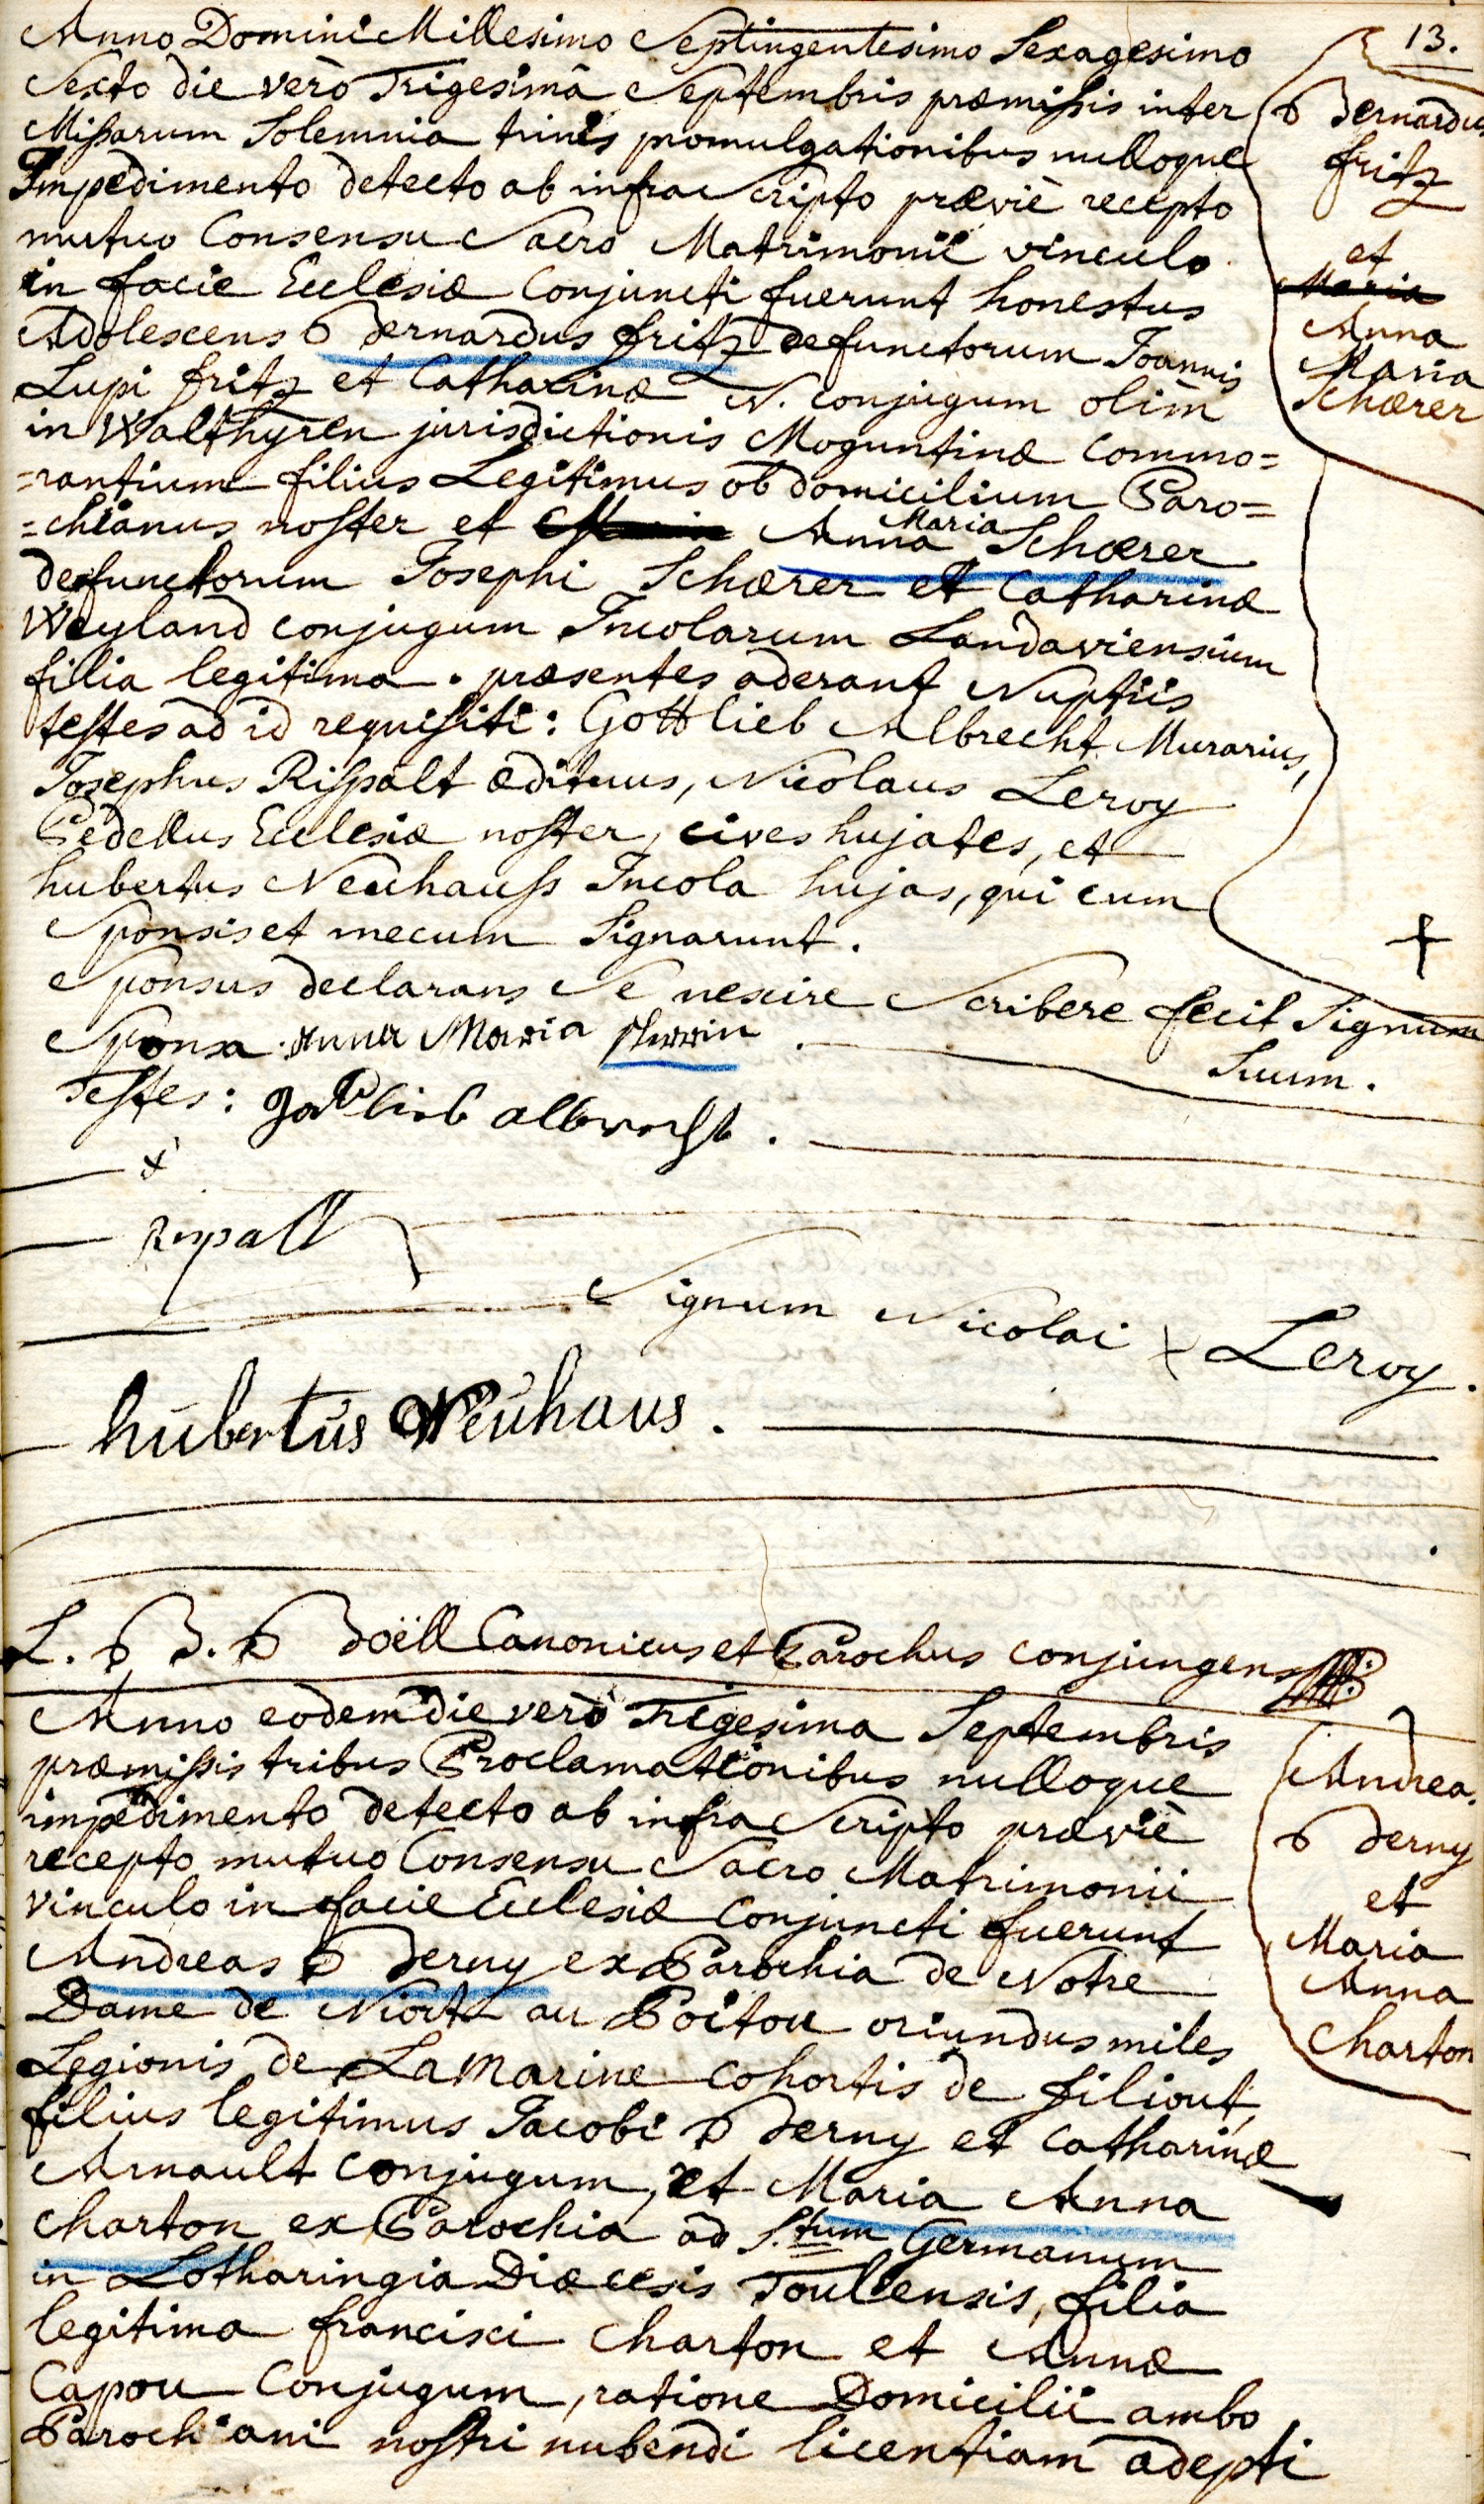 13.
Anno Domini Millesimo Septingentesimo Sexagesimo
Sexto die verò Trigesimâ Septembris præmissis inter
Missarum Solemnia trinis promulgationibus nulloque
Impedimento detecto ab infra Scripto præviè recepto
mutuo Consensu Sacro Matrimonii vinculo
in facie Ecclesiæ Conjuncti fuerunt honestus
Adolescens Bernardus fritz defunctorum Joannis
Lupi fritz et Catharinæ N. conjugum olim
in Walthyren jurisdictionis Moguntinæ commo=
=rantium filius Legitimus ob domicilium Paro=
=chianus noster et Maria Anna Maria Schærer
defunctorum Josephi Schærer et Catharinæ
Weyland conjugum Incolarum Landaviensium
filia legitima. præsentes aderant Nuptiis
testes ad id requisiti: Gottlieb Albrecht Murarius,
Josephus Rispalt ædituus, Nicolaus Leroy
Pedellus Ecclesiæ noster, cives hujates, et
hubertus Neuhauss Incola hujas, qui cum
Sponsis et mecum Signarunt.
Sponsus declarans Se nescire Scribere fecit Signum
Suum. +
Sponsa Anna Maria
Testes: gottlieb albrecht.
Rispalt
Signum Nicolai x Leroy.
hubertus Neuhaus.
L. B. Boëll Canonicus et Parochus conjungens
Bernardus
fritz
et
Maria
Anna
Maria
Schærer
Anno eodem die verò Trigesima Septembris
præmissis tribus Proclamationibus nulloque
impedimento detecto ab infra Scripto præviè
recepto mutuo Consensu Sacro Matrimonii
vinculo in facie Ecclesiæ Conjuncti fuerunt
Andreas Berny ex Parochia de Notre
Dame de Niort au Poitou oriundus miles
Legionis de La Marine cohortis de filiout,
filius legitimus Jacobi Berny et Catharinæ
Arnault conjugum, et Maria Anna
Charton ex Parochia ad S.tum Germanum
in Lotharingia Diæcesis Toullensis, filia
legitima francisci Charton et Annæ
Capou Conjugum, ratione Domicilii ambo
Parochiani nostri nubendi licentiam adepti
Andreas
Berny
et
Maria
Anna
Charton